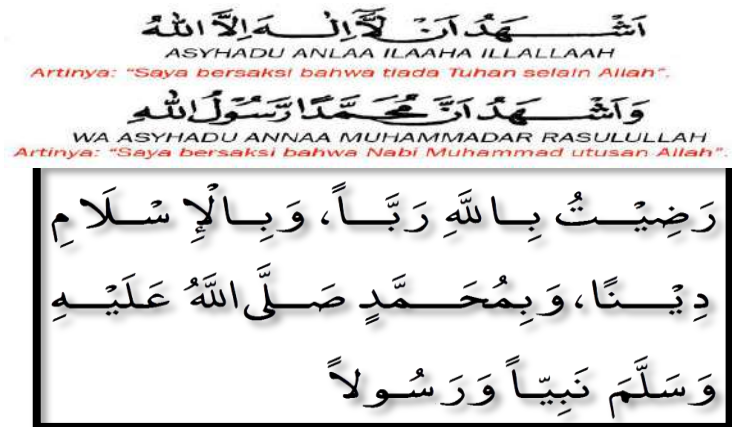 اَشْهَدُ اَنْ لَّآ اِلٰهَ اِلَّا اللهُ
ASYHADU ANLAA ILAAHA ILLALLAAH
Artinya: “Saya bersaksi bahwa tiada Tuhan selain Allah”.
وَاَشْهَدُ اَنَّ مُحَمَّدًا رَّسُوْلُ اللهِ
WA ASYHADU ANNAA MUHAMMADAR RASULULLAH
Artinya: “Saya bersaksi bahwa Nabi Muhammad utusan Allah”.
رَضِيْتُ بِاللهِ رَبَّاً، وَبِالْإِ سْلَامِ
دِيْنًا، وَبِمُحَمَّدٍ صَلَّى اللَّهُ عَلَيْهِ
وَسَلَّمَ نَبِيّاً وَرَسُولاً